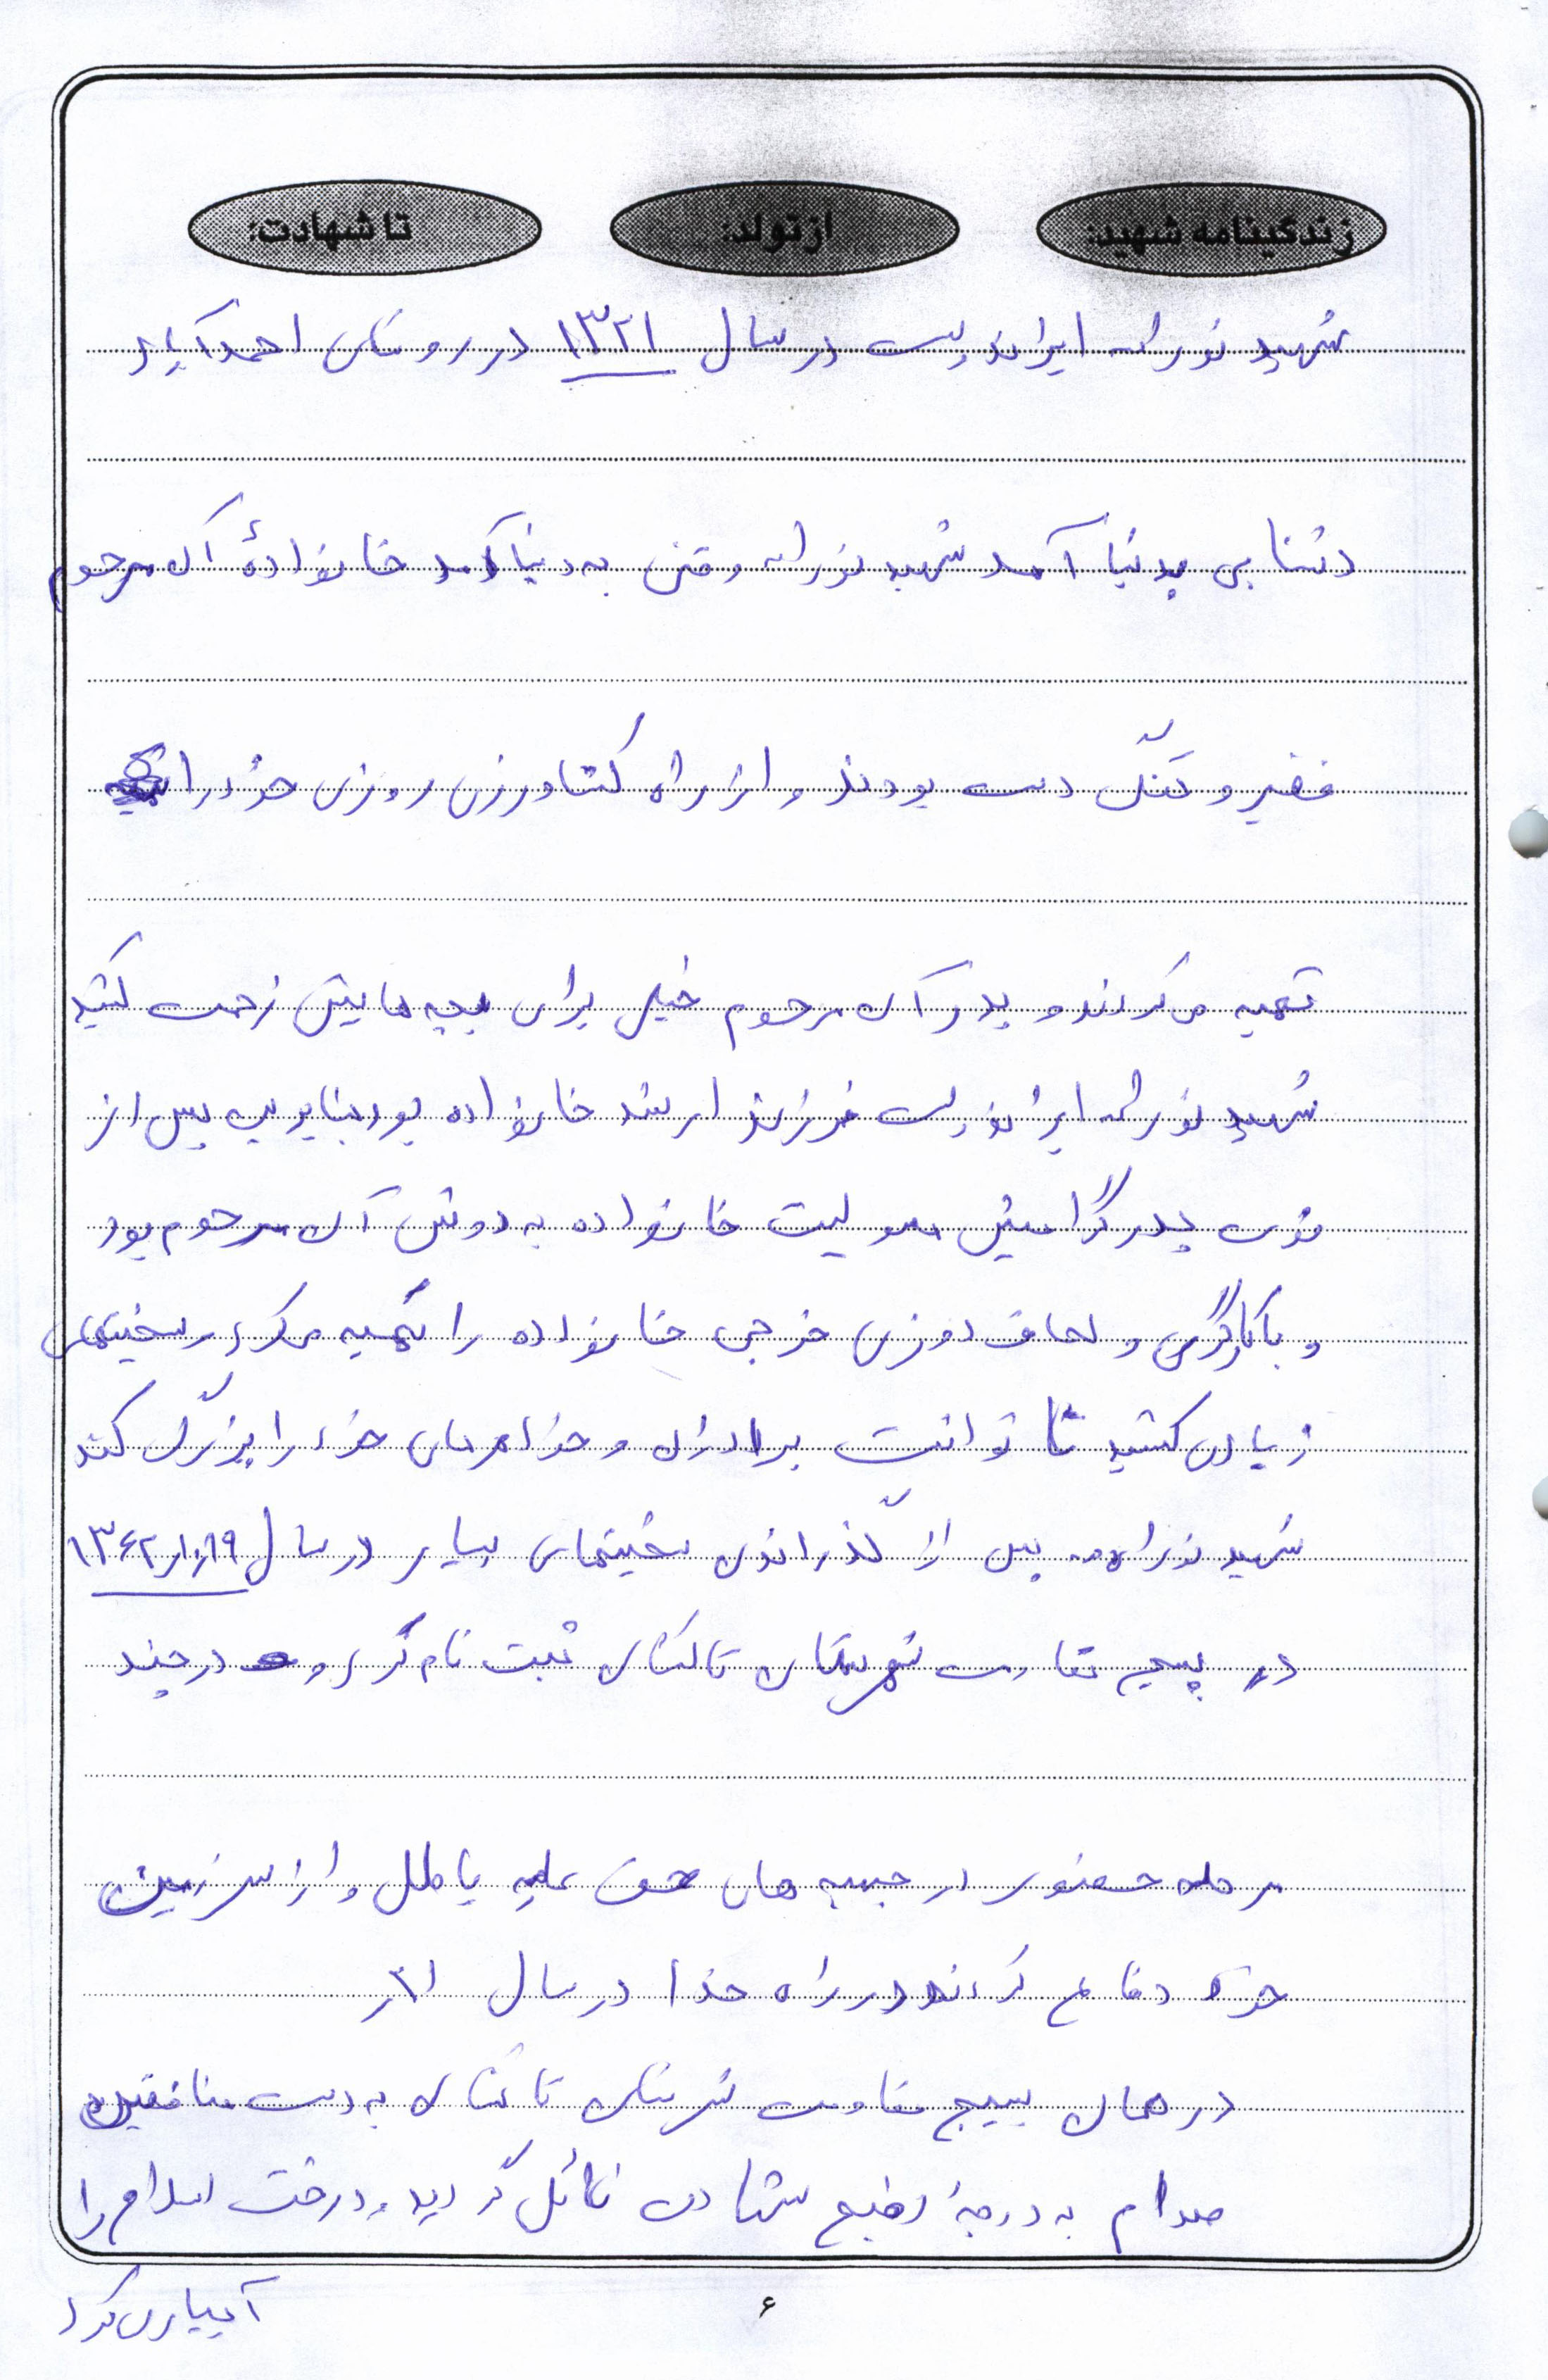 زندگینامه شهید: از تولد: تا شهادت:
شهید نوراله ایراندوست در سال ۱۳۲۱ در روستای احمدآباد
دشتابی بدنیا آمد شهید نوراله وقتی به دنیا آمد خانوادهٔ آن مرحوم
فقیر و تنگ دست بودند و از راه کشاورزی روزی خود را
تهیه می کردند و پدر آن مرحوم خیلی برای بچه هایش زحمت کشید
شهید نوراله ایراندوست فرزند ارشد خانواده بود بنابراین پس از
فوت پدر گرامیش مسولیت خانواده به دوش آن مرحوم بود
و با کارگری و لحاف دوزی خرجی خانواده را تهیه می کرد و سختیهای
زیادی کشید تا توانست برادران و خواهرهای خود را بزرگ کند
شهید نوراله پس از گذراندن سختیهای بسیار در سال
در بسیج مقاومت شهرستان تاکستان ثبت نام کرد و در چند
مرحله حضور در جبهه های حق علیه باطل و از سرزمین
خود دفاع کردند در راه خدا در سال
در همان بسیج مقاومت شهرستان تاکستان به دست منافقین
صدام به درجهٔ رفیع شهادت نائل گردید و درخت اسلام را
آبیاری کرد
۶